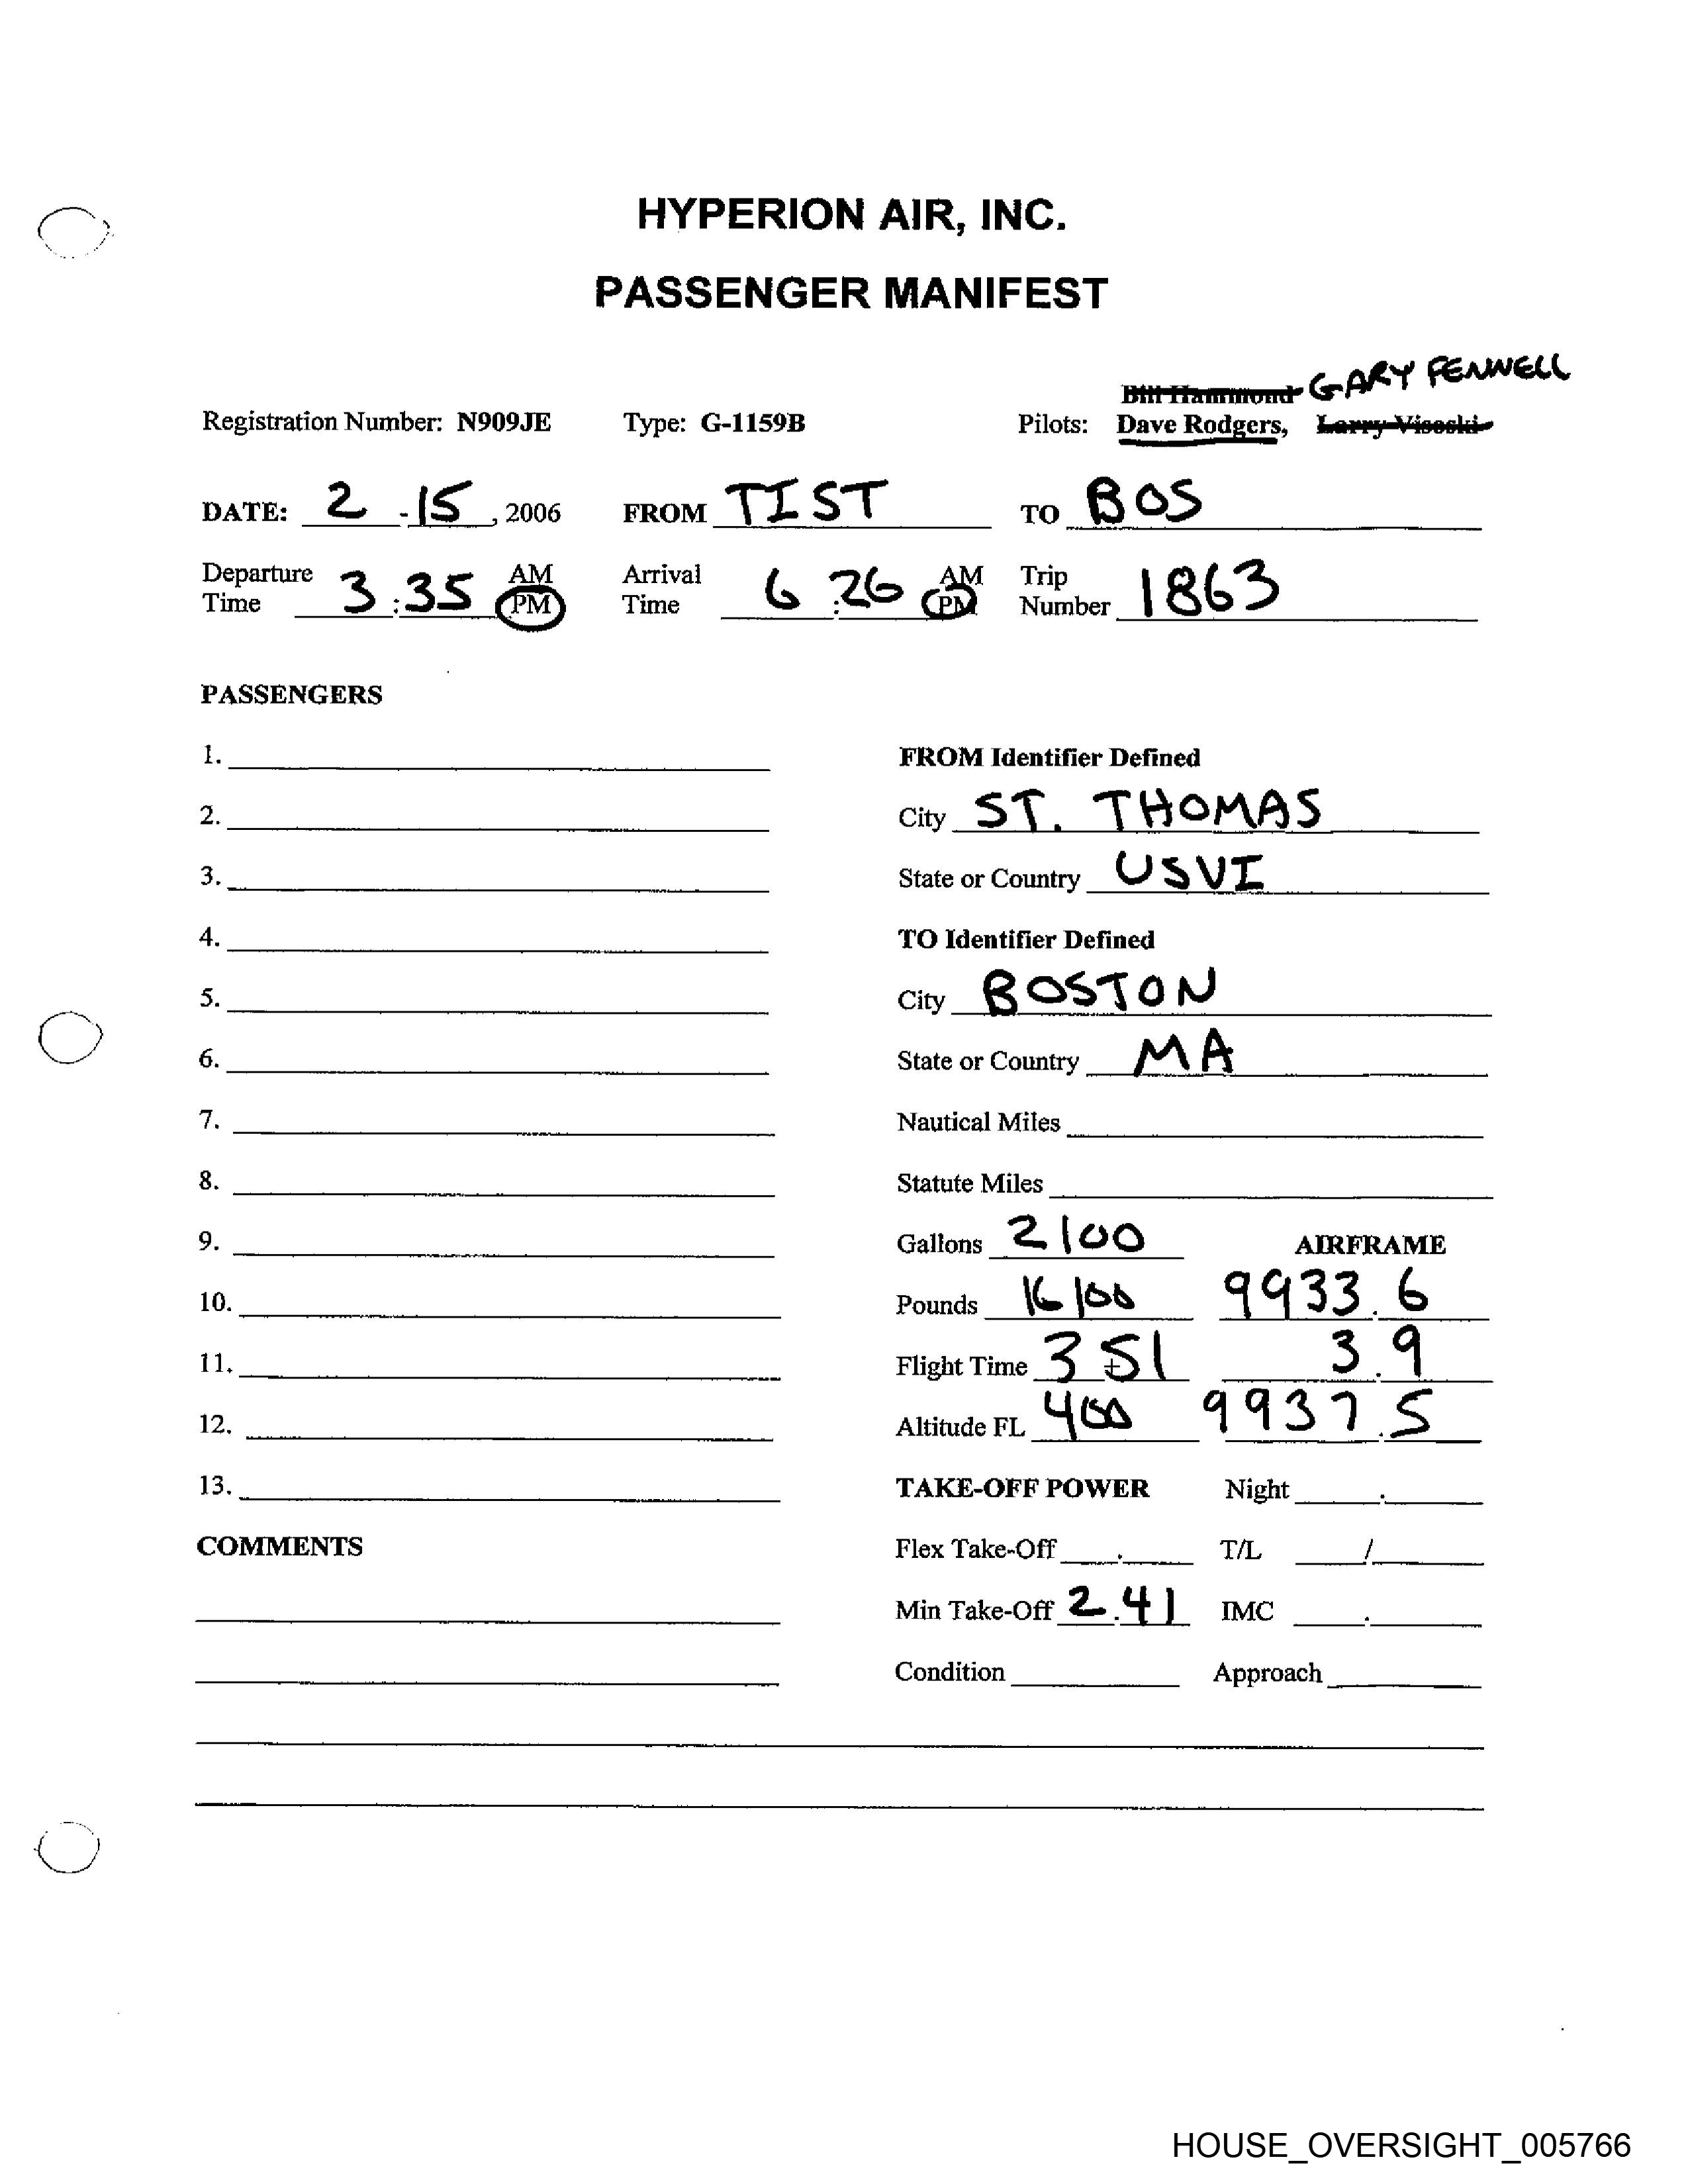 HYPERION AIR, INC.
PASSENGER MANIFEST
Bill Hammond GARY FENWELL
Registration Number: N909JE Type: G-1159B Pilots: Dave Rodgers, Larry Visoski
DATE: 2 - 15, 2006 FROM TIST TO BOS
Departure Time 3:35 AM PM Arrival Time 6:26 AM PM Trip Number 1863
PASSENGERS
1.
FROM Identifier Defined
2.
City ST. THOMAS
3.
State or Country USVI
4.
TO Identifier Defined
5.
City BOSTON
6.
State or Country MA
7.
Nautical Miles
8.
Statute Miles
9.
Gallons 2100 AIRFRAME
10.
Pounds 16100 9933.6
11.
Flight Time 3+51 3.9
12.
Altitude FL 400 9937.5
13.
TAKE-OFF POWER Night .
COMMENTS
Flex Take-Off . T/L /
Min Take-Off 2.41 IMC .
Condition Approach
HOUSE_OVERSIGHT_005766